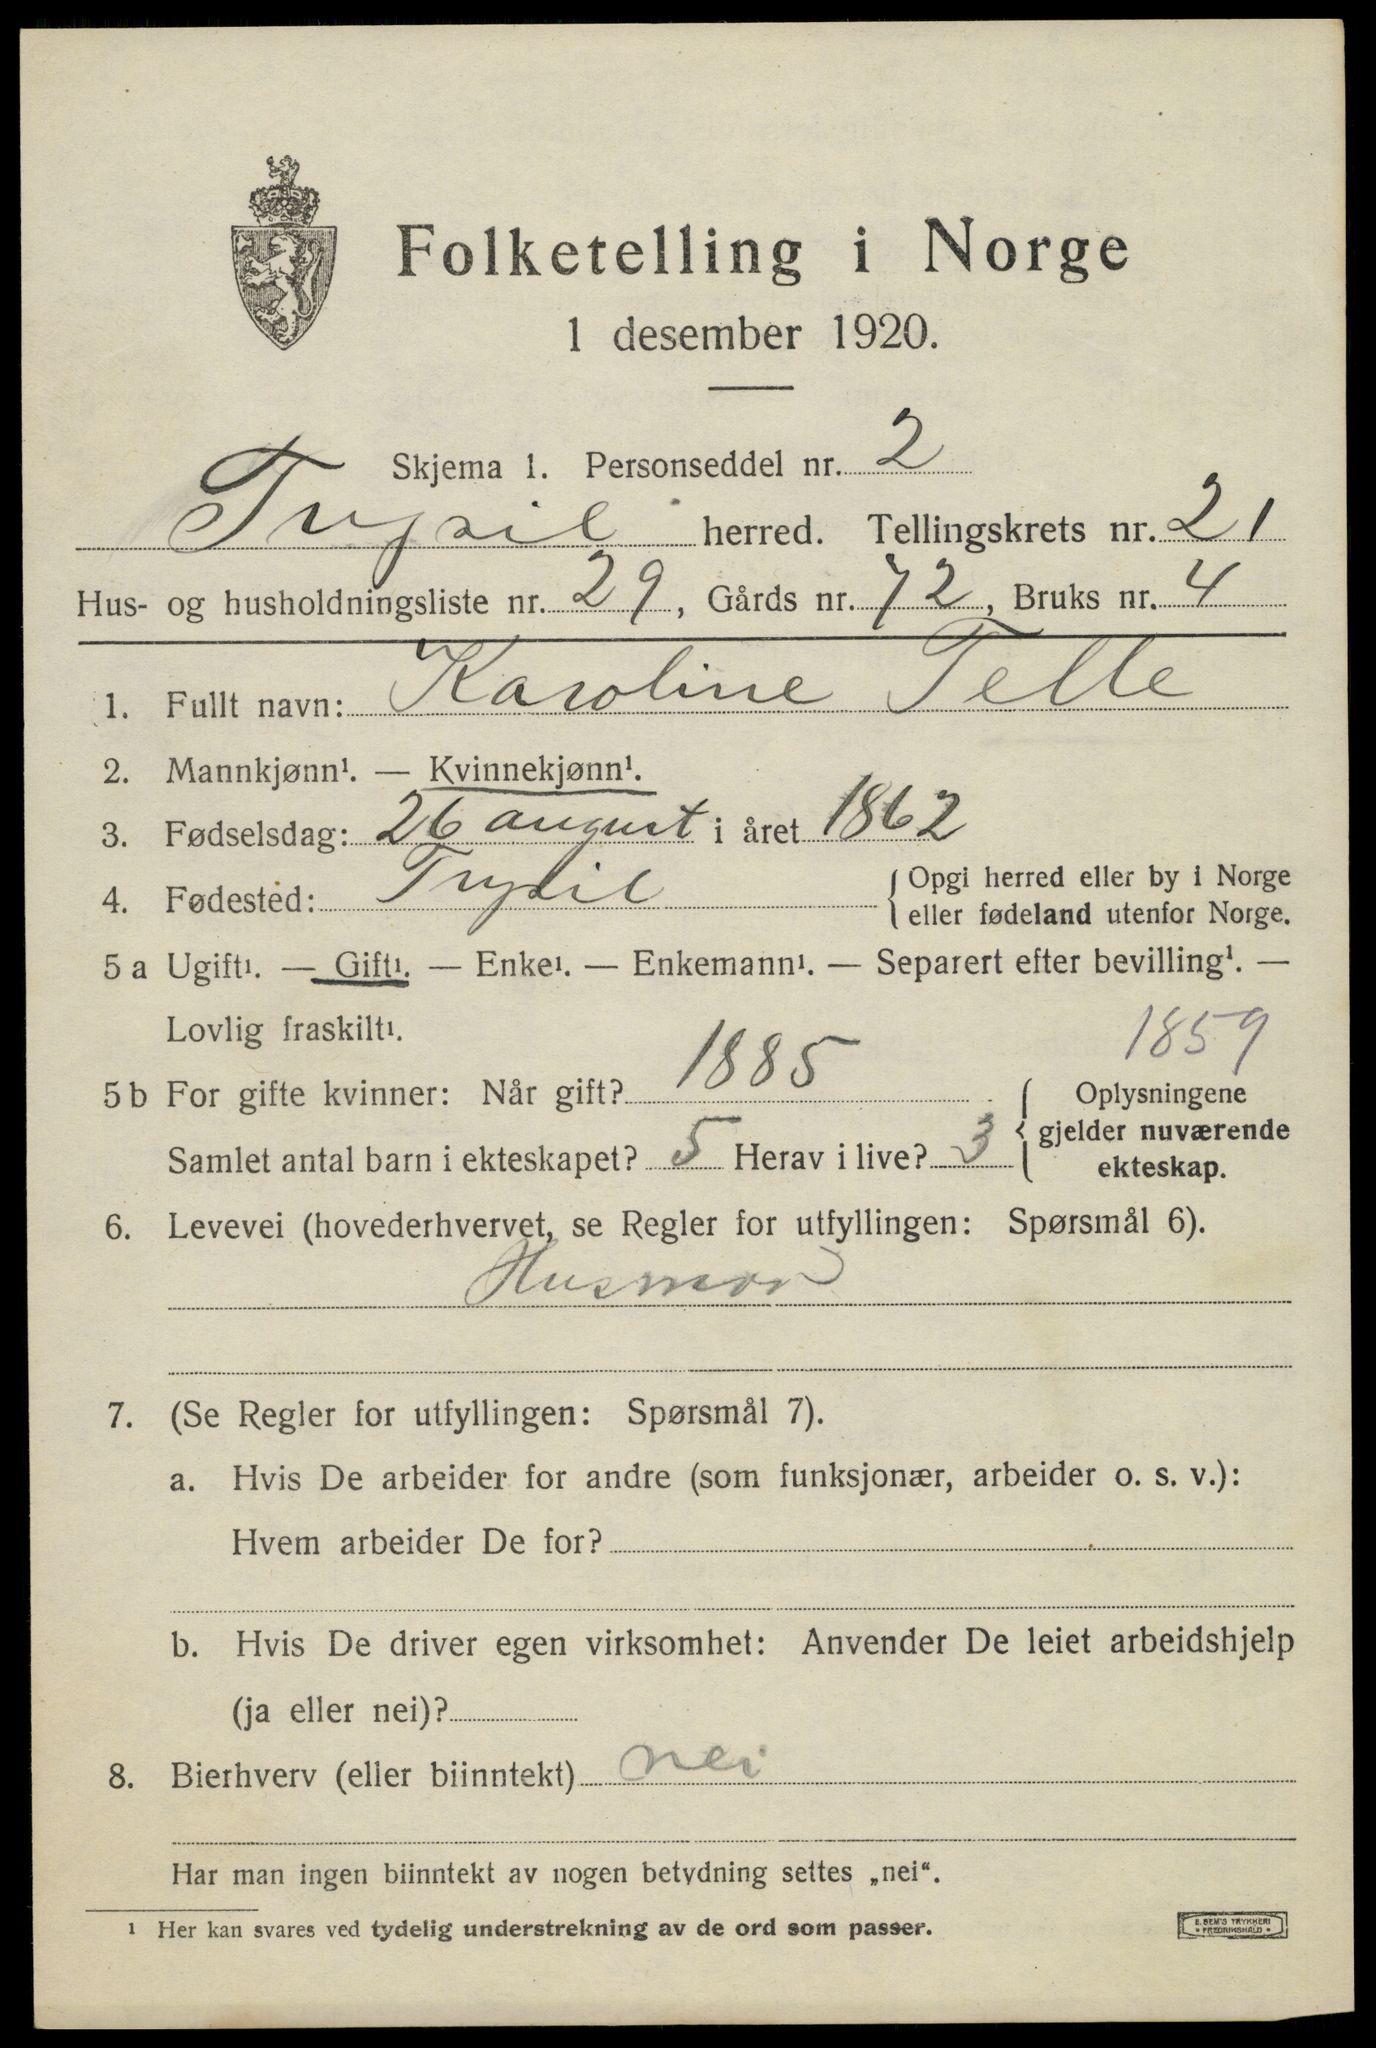 Folketelling i Norge
1 desember 1920.
Skjema 1. Personseddel nr. 2
Trysil herred. Tellingskrets nr. 21
Hus- og husholdningsliste nr. 29, Gårds nr. 72, Bruks nr. 4
1. Fullt navn: Karoline Telle
2. Mannkjønn¹. — Kvinnekjønn¹.
3. Fødselsdag: 26 august i året 1862
4. Fødested: Trysil { Opgi herred eller by i Norge
eller fødeland utenfor Norge.
5 a Ugift¹. — Gift¹. — Enke¹. — Enkemann¹. — Separert efter bevilling¹. —
Lovlig fraskilt¹.
1859
5 b For gifte kvinner: Når gift? 1885
Samlet antal barn i ekteskapet? 5 Herav i live? 3
{ Oplysningene
gjelder nuværende
ekteskap.
6. Levevei (hovederhvervet, se Regler for utfyllingen: Spørsmål 6).
Husmor
7. (Se Regler for utfyllingen: Spørsmål 7).
a. Hvis De arbeider for andre (som funksjonær, arbeider o. s. v.):
Hvem arbeider De for?
b. Hvis De driver egen virksomhet: Anvender De leiet arbeidshjelp
(ja eller nei)?
8. Bierhverv (eller biinntekt) nei
Har man ingen biinntekt av nogen betydning settes „nei“.
¹ Her kan svares ved tydelig understrekning av de ord som passer.
E. SEM'S TRYKKERI
• FREDRIKSHALD •